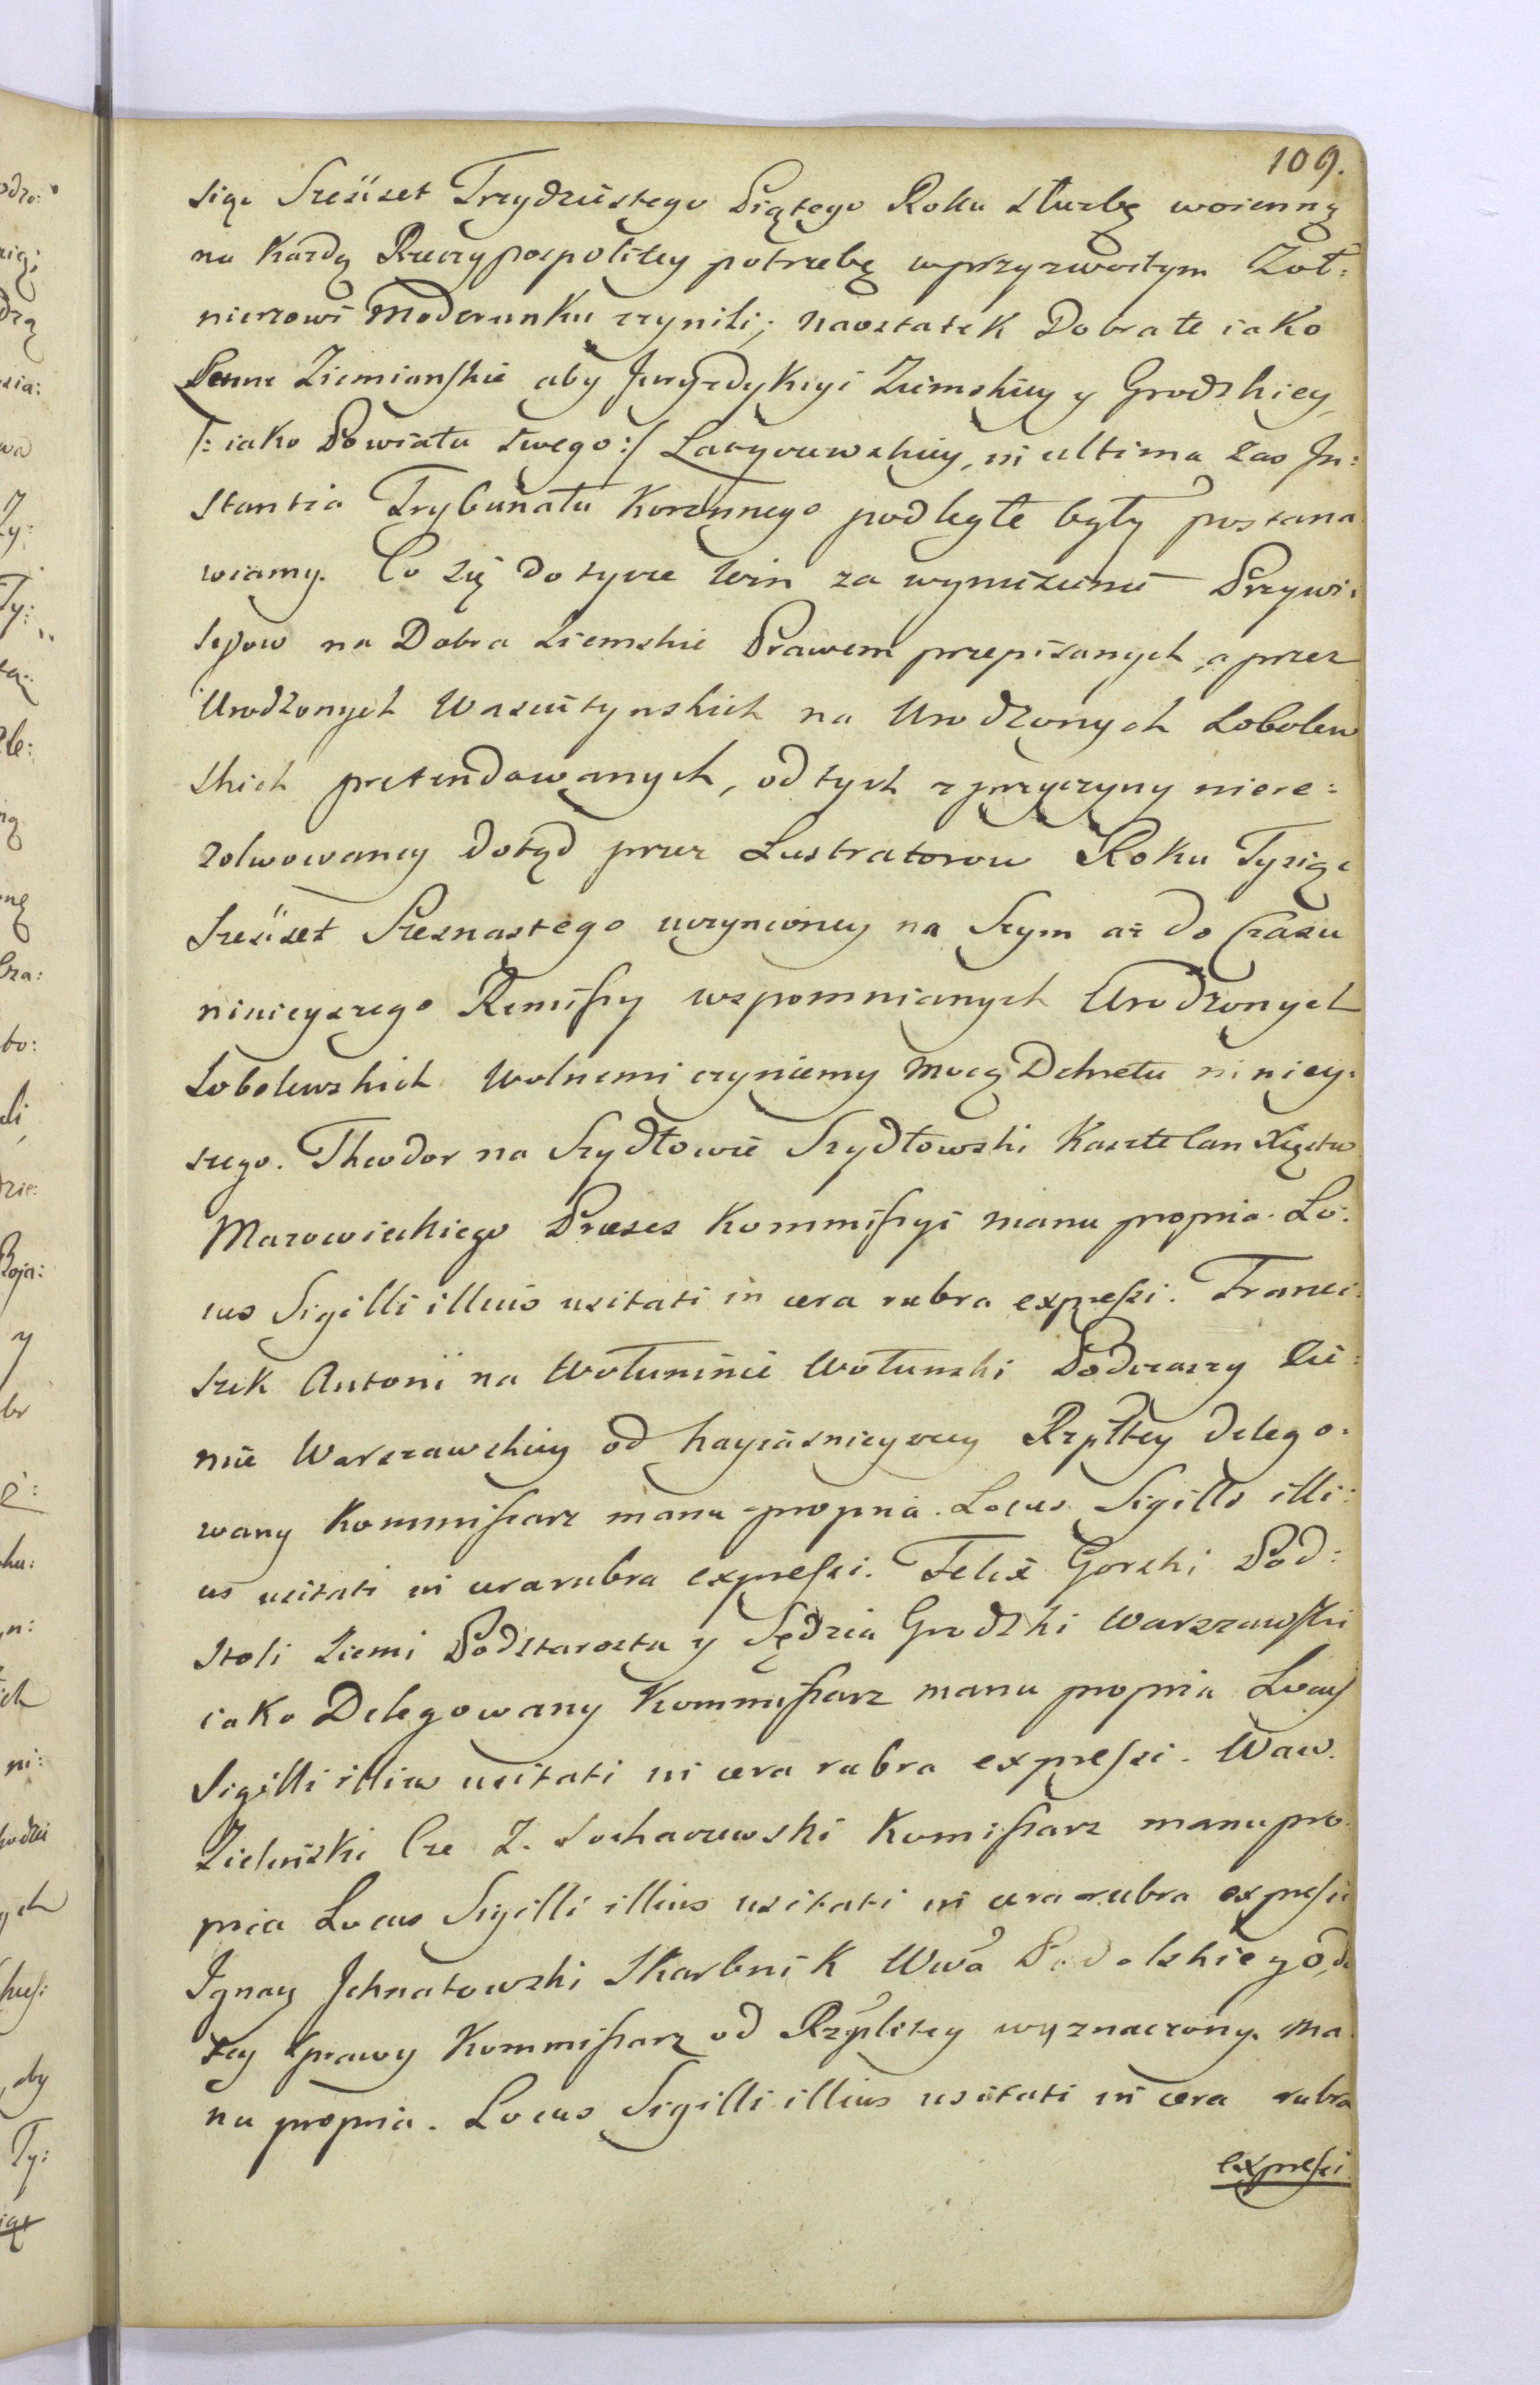 109.
siąc Sześćset Trzydziestego Piątego Roku służbę woienną
na Każdą Rzeczypospolitey potrzebę w przyzwoitym Zoł:
nierzowi Moderunku czynili; naostatek Dobra te iako
Ziemianskie aby Juryzdykcyi Ziemskiey y Grodzkiey,
/: iako Powiatu swego :/ Latyczewskiey, in ultima zas In:
stantia Trybunału Koronnego podległe były postana
wiamy. Co się dotycze Win za wyniesienie Przywi:
lejow na Dobra Ziemskie Prawem przepisanych, a przez
Urodzonych Wasiutynskich na Urodzonych Sobolew
skich pretendowanych, od tych z przyczyny niere:
zolwowaney dotąd przez Lustratorow Roku Tysiąc
Sześćset Szesnastego uczynioney na Seym aż do Czasu
ninieyszego Remissy wspomnianych Urodzonych
Sobolewskich wolnemi czyniemy mocą Dekretu niniey:
szego. Theodor na Szydłowie Szydłowski Kasztelan Xięstwa
Mazowieckiego Prezes Kommissyi manu propria. Lo:
cus Sigilli illius usitati in cera rubra expressi. Franci:
szek Antoni na Wołuninie Wołunski Podczaszy Zie:
mie Warszawskiey od Nayiasnieyszey Rzpltey delego:
wany Kommissarz manu propria. Locus Sigilli illi:
us usitati in cera rubra expressi. Felix Gorski Pod:
stoli Ziemi Podstarosta y Sędzia Grodzki Warszawski
iako Delegowany Kommissarz manu propria Locus
Sigilli illius usitati in cera rubra expressi. Waw.
Zielinski Cze Z. Sochaczewski Komissarz manu pro
pria Locus Sigilli illius usitati in cera rubra expressi
Ignacy Jchnatowski Skarbnik Wwa Podolskiego, do
tey sprawy Kommissarz od Rzplitey wyznaczony. Ma
nu propria. Locus Sigilli illius usitati in cera rubra
expressi